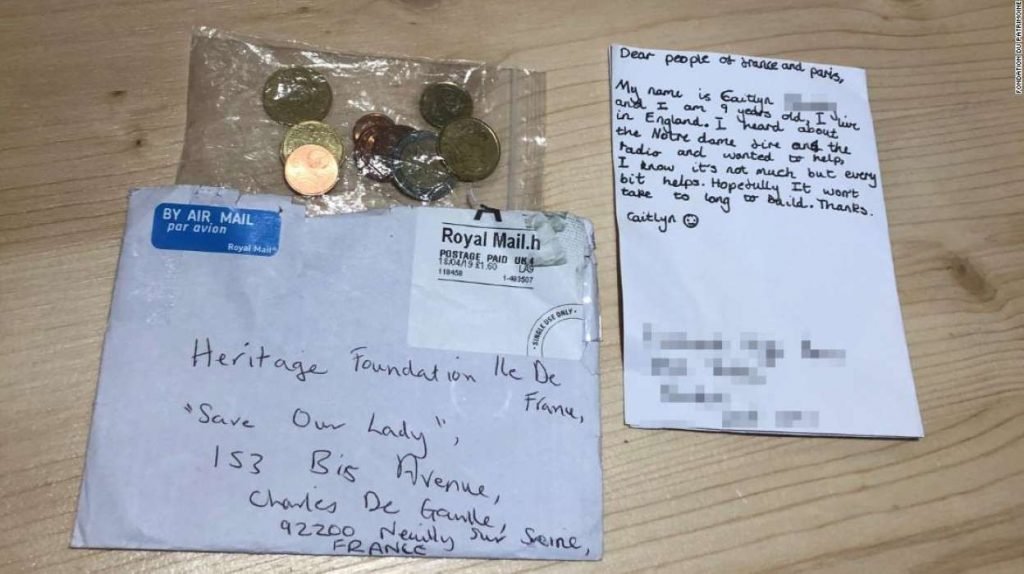 FONDATION DU PATRIMOINE
BY AIR MAIL
par avion
Royal Mail
Royal Mail.h
POSTAGE PAID UK
18/04/19 £1.60
118458 1-493507
SINGLE USE ONLY
Heritage Foundation Ile De
France,
"Save Our Lady",
153 Bis Avenue,
Charles De Gaulle,
92200 Neuilly Sur Seine,
FRANCE
Dear people of france and paris,
My name is Caitlyn
and I am 9 years old, I live
in England. I heard about
the Notre dame fire and the
radio and wanted to help,
I know it's not much but every
bit helps. Hopefully It won't
take to long to build. Thanks.
Caitlyn ☺